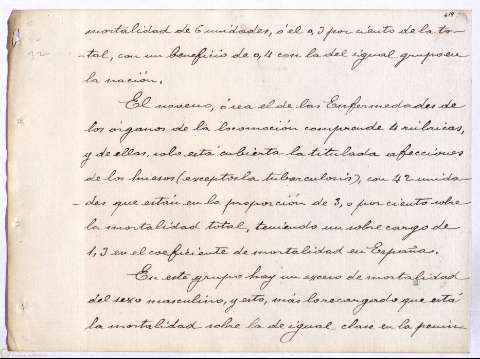 mortalidad de 6 unidades, ó el 0,3 por ciento de la to-
tal, con un beneficio de 0,4 con la del igual grupo en
la nación.
El noveno, ó sea el de las Enfermedades de
los órganos de la locomoción comprende 4 rúbricas,
y de ellas, solo está cubierta la titulada afecciones
de los huesos (excepto la tuberculosis), con 42 unida-
des que están en la proporción de 3,0 por ciento sobre
la mortalidad total, teniendo un sobre cargo de
1,3 en el coeficiente de mortalidad en España.
En este grupo hay un exceso de mortalidad
del sexo masculino, y esto, más lo recargado que está
la mortalidad sobre la de igual clase en la penin